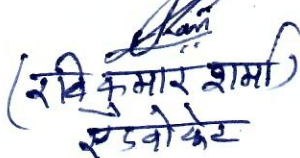 (रवि कुमार शर्मा)
एडवोकेट